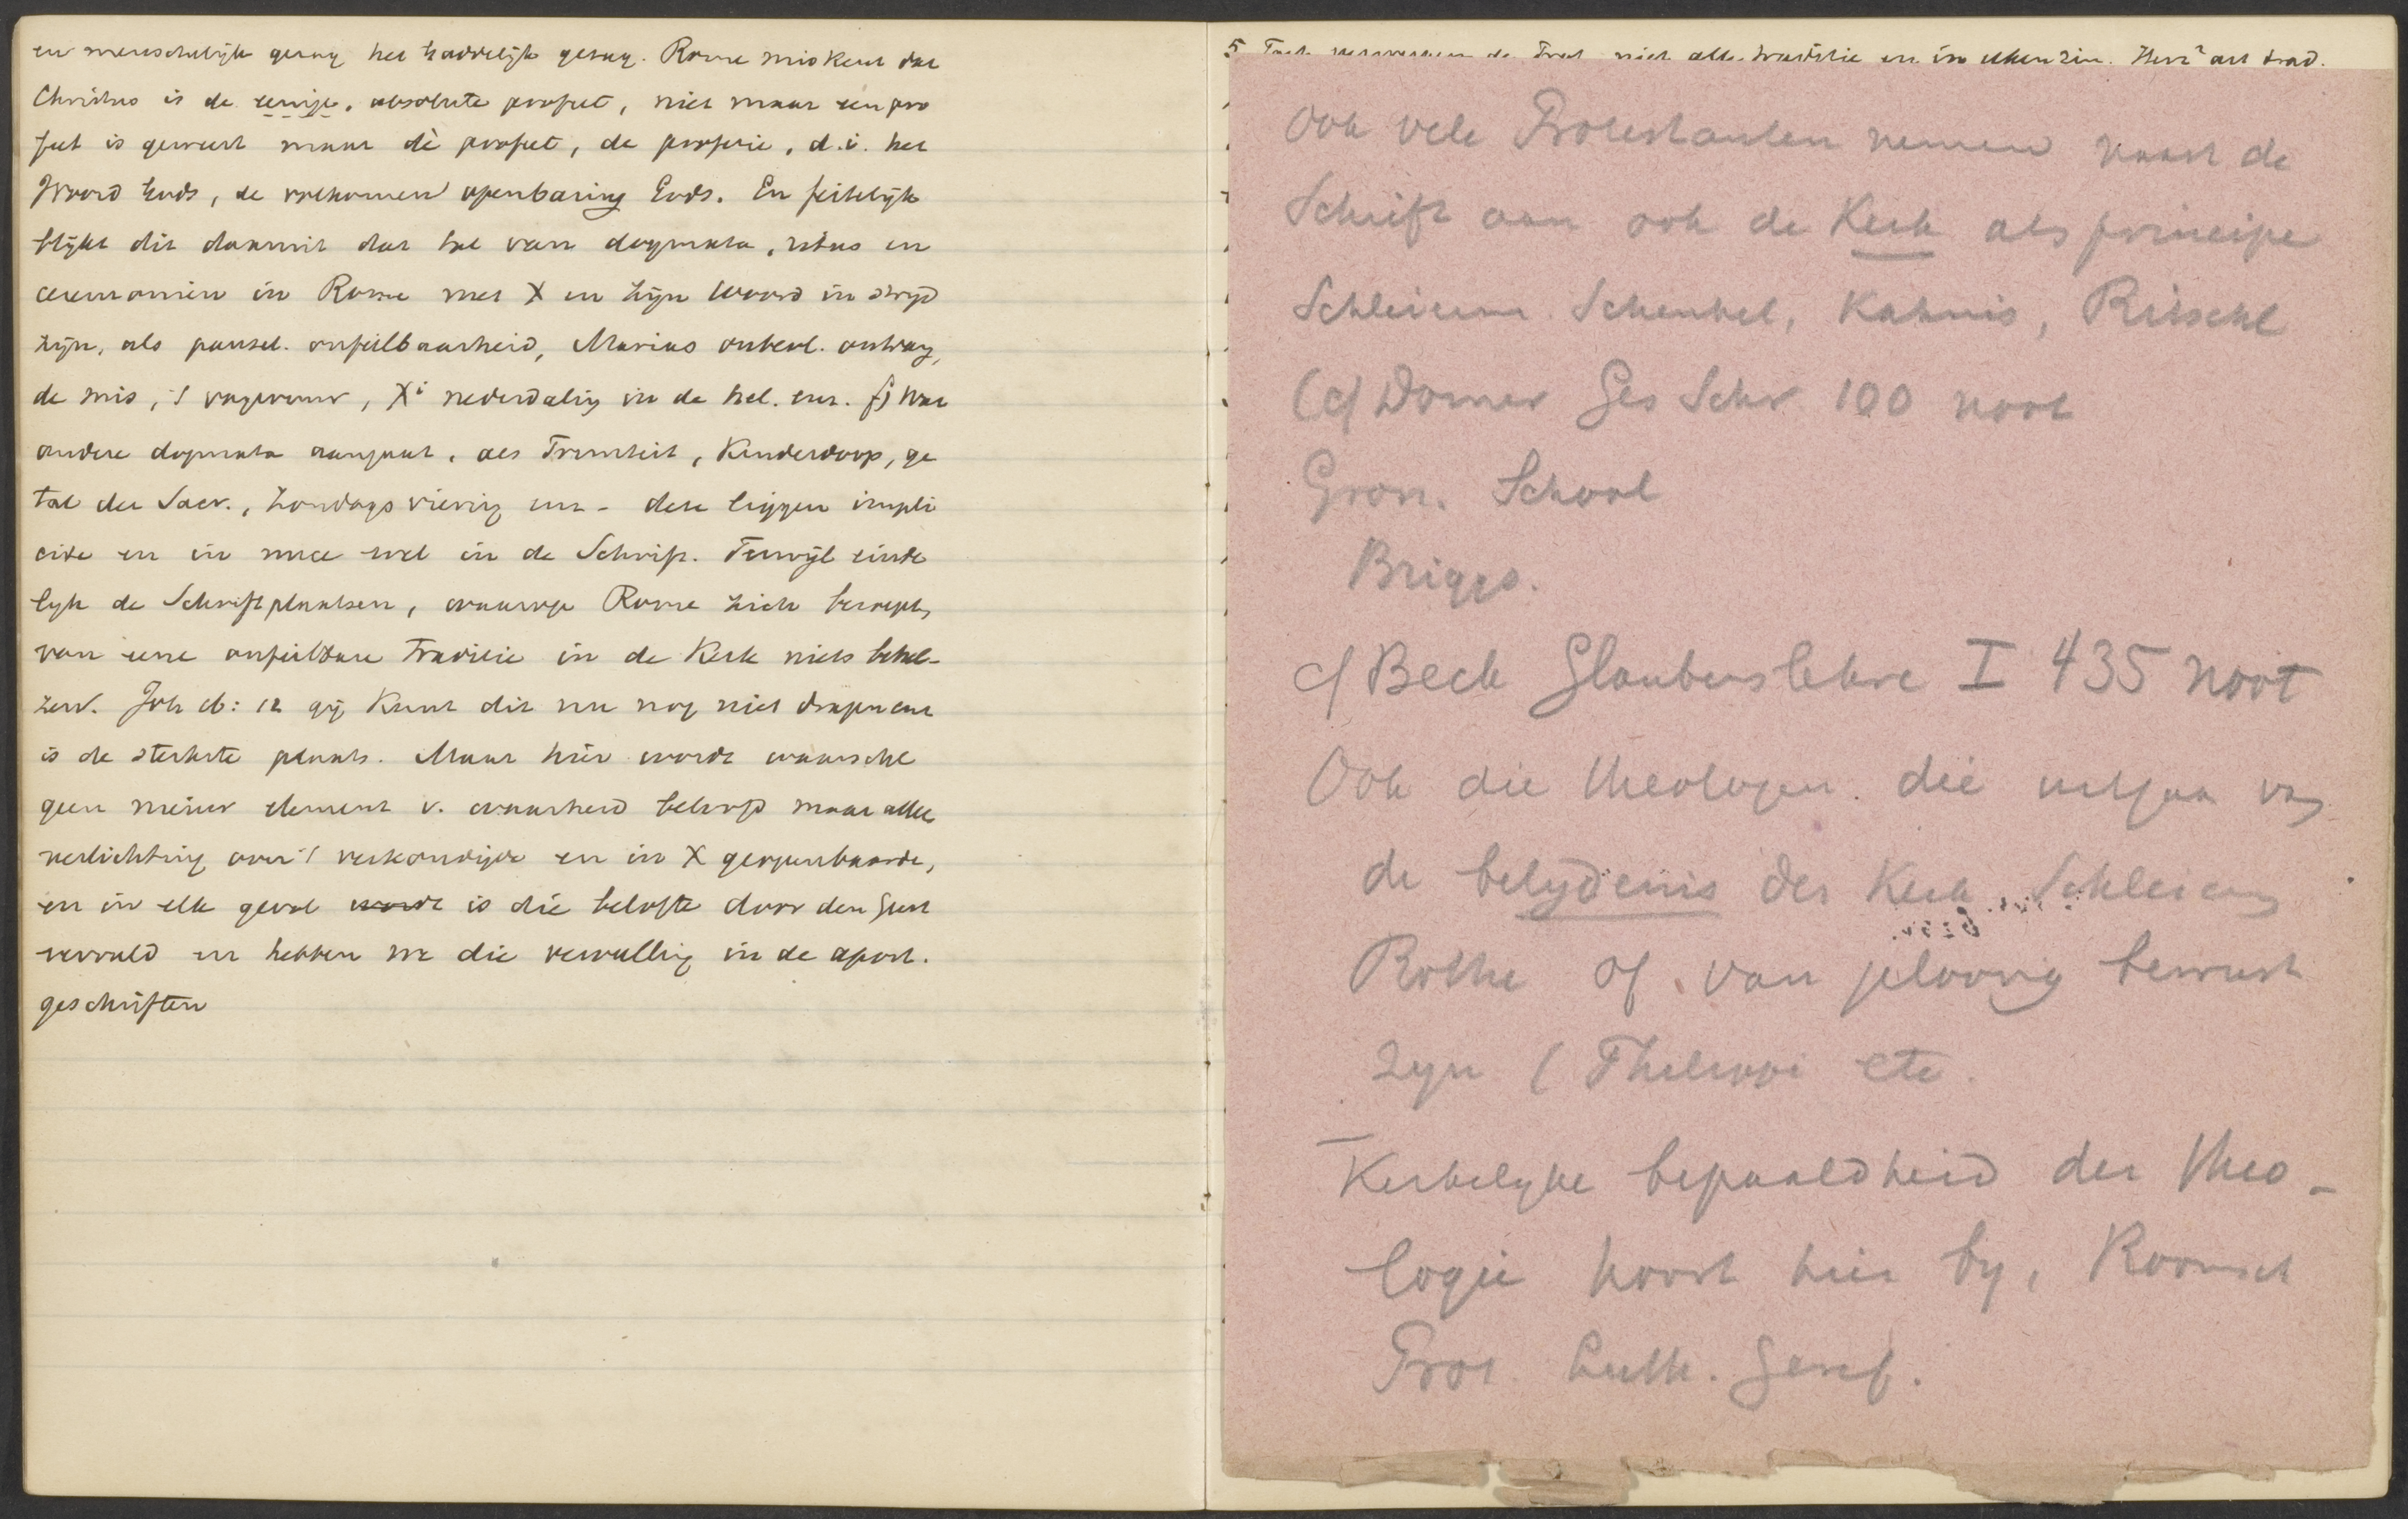 en menschelijk gezag het goddelijk gezag. Rome miskent dat
Christus is de eenige, absolute profeet, niet maar een pro
feet is geweest maar dè profeet, de profetie, d.i. het
Woord Gods, de volkomen openbaring Gods. En feitelijk
blijkt dit daaruit dat tal van dogmata, ritus en
ceremonien in Rome met X en zijn woord in strijd
zijn, als pausel. onfeilbaarheid, Marias onbevl. ontvang,
de mis, 't vagevuur, Xi nederdaling in de hel. enz. f) Wat
andere dogmata aangaat, als Triniteit, Kinderdoop, ge
tal der Sacr., Zondagsviering enz - deze liggen impli
cite en in nuce wel in de Schrift. Terwijl einde
lijk de Schriftplaatsen, waarop Rome zich beroept,
van eene onfeilbare traditie in de Kerk niets behel-
zen. Joh 16: 12 gij kunt dit nu nog niet dragen enz
is de sterkste plaats. Maar hier wordt waarschl
geen nieuw element v. waarheid beloofd maar allee
verlichting over 't verkondigde en in X geopenbaarde,
en in elk geval wordt is die belofte door den Geest
vervuld en hebben we die vervulling in de apost.
geschriften
5 Toch verwerpen de Prot niet alle traditie en in elken zin. Herz² art trad.
Ook vele Protestanten nemen naast de
Schrift aan ook de Kerk als principe
Schleierm. Schenkel, Kahnis, Ritschl
(cf Dorner Ges Schr 100 noot
Gron. School
Briggs.
cf Beck Glaubenslehre I 435 noot
Ook die theologen. die uitgaan van
de belydenis der Kerk. Schleierm
Rothe of van geloovig bewust
zyn (Philippi etc.
Kerkelyke bepaaldheid der Theo-
logie hoort hier by, Roomsch
Prot. Luth. Geref.